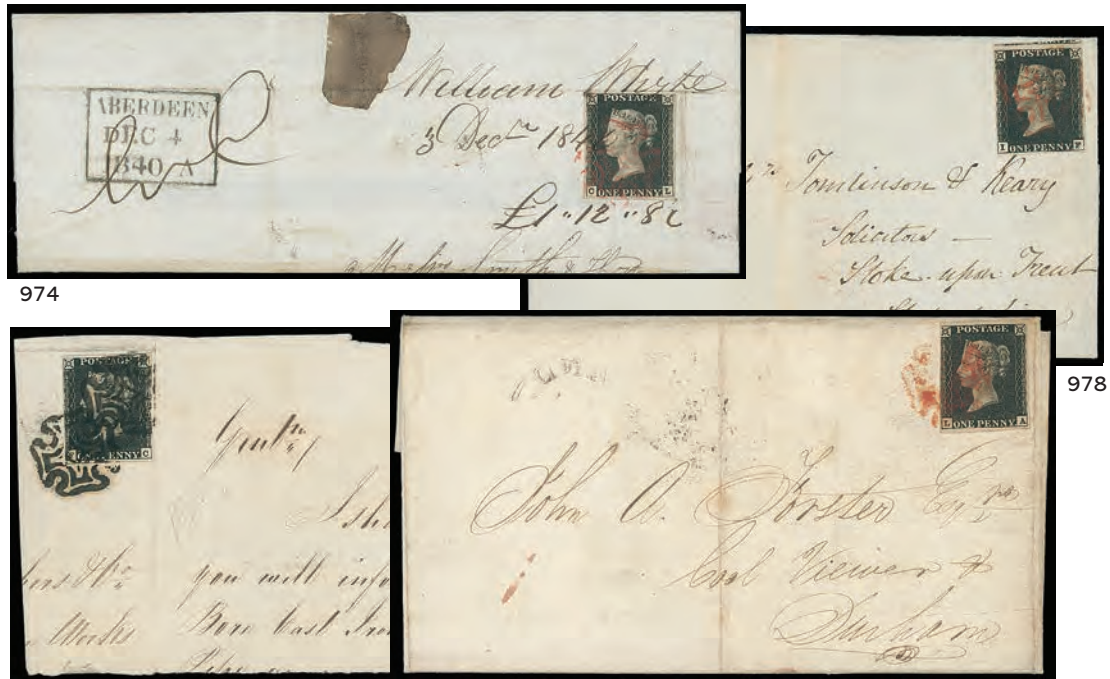 ABERDEEN
DEC 4
1840 A
William Whyte
3 Dec 184
POSTAGE
C ONE PENNY L
£1"12"8
Smith &
974
POSTAGE
I ONE PENNY F
Tomlinson & Keary
Solicitors —
Stoke upon Trent
978
POSTAGE
ENNY C
you will info
Works
Bore Cast Iron
POSTAGE
L ONE PENNY A
John A. Forster Esqre
Coal Viewer &
Durham